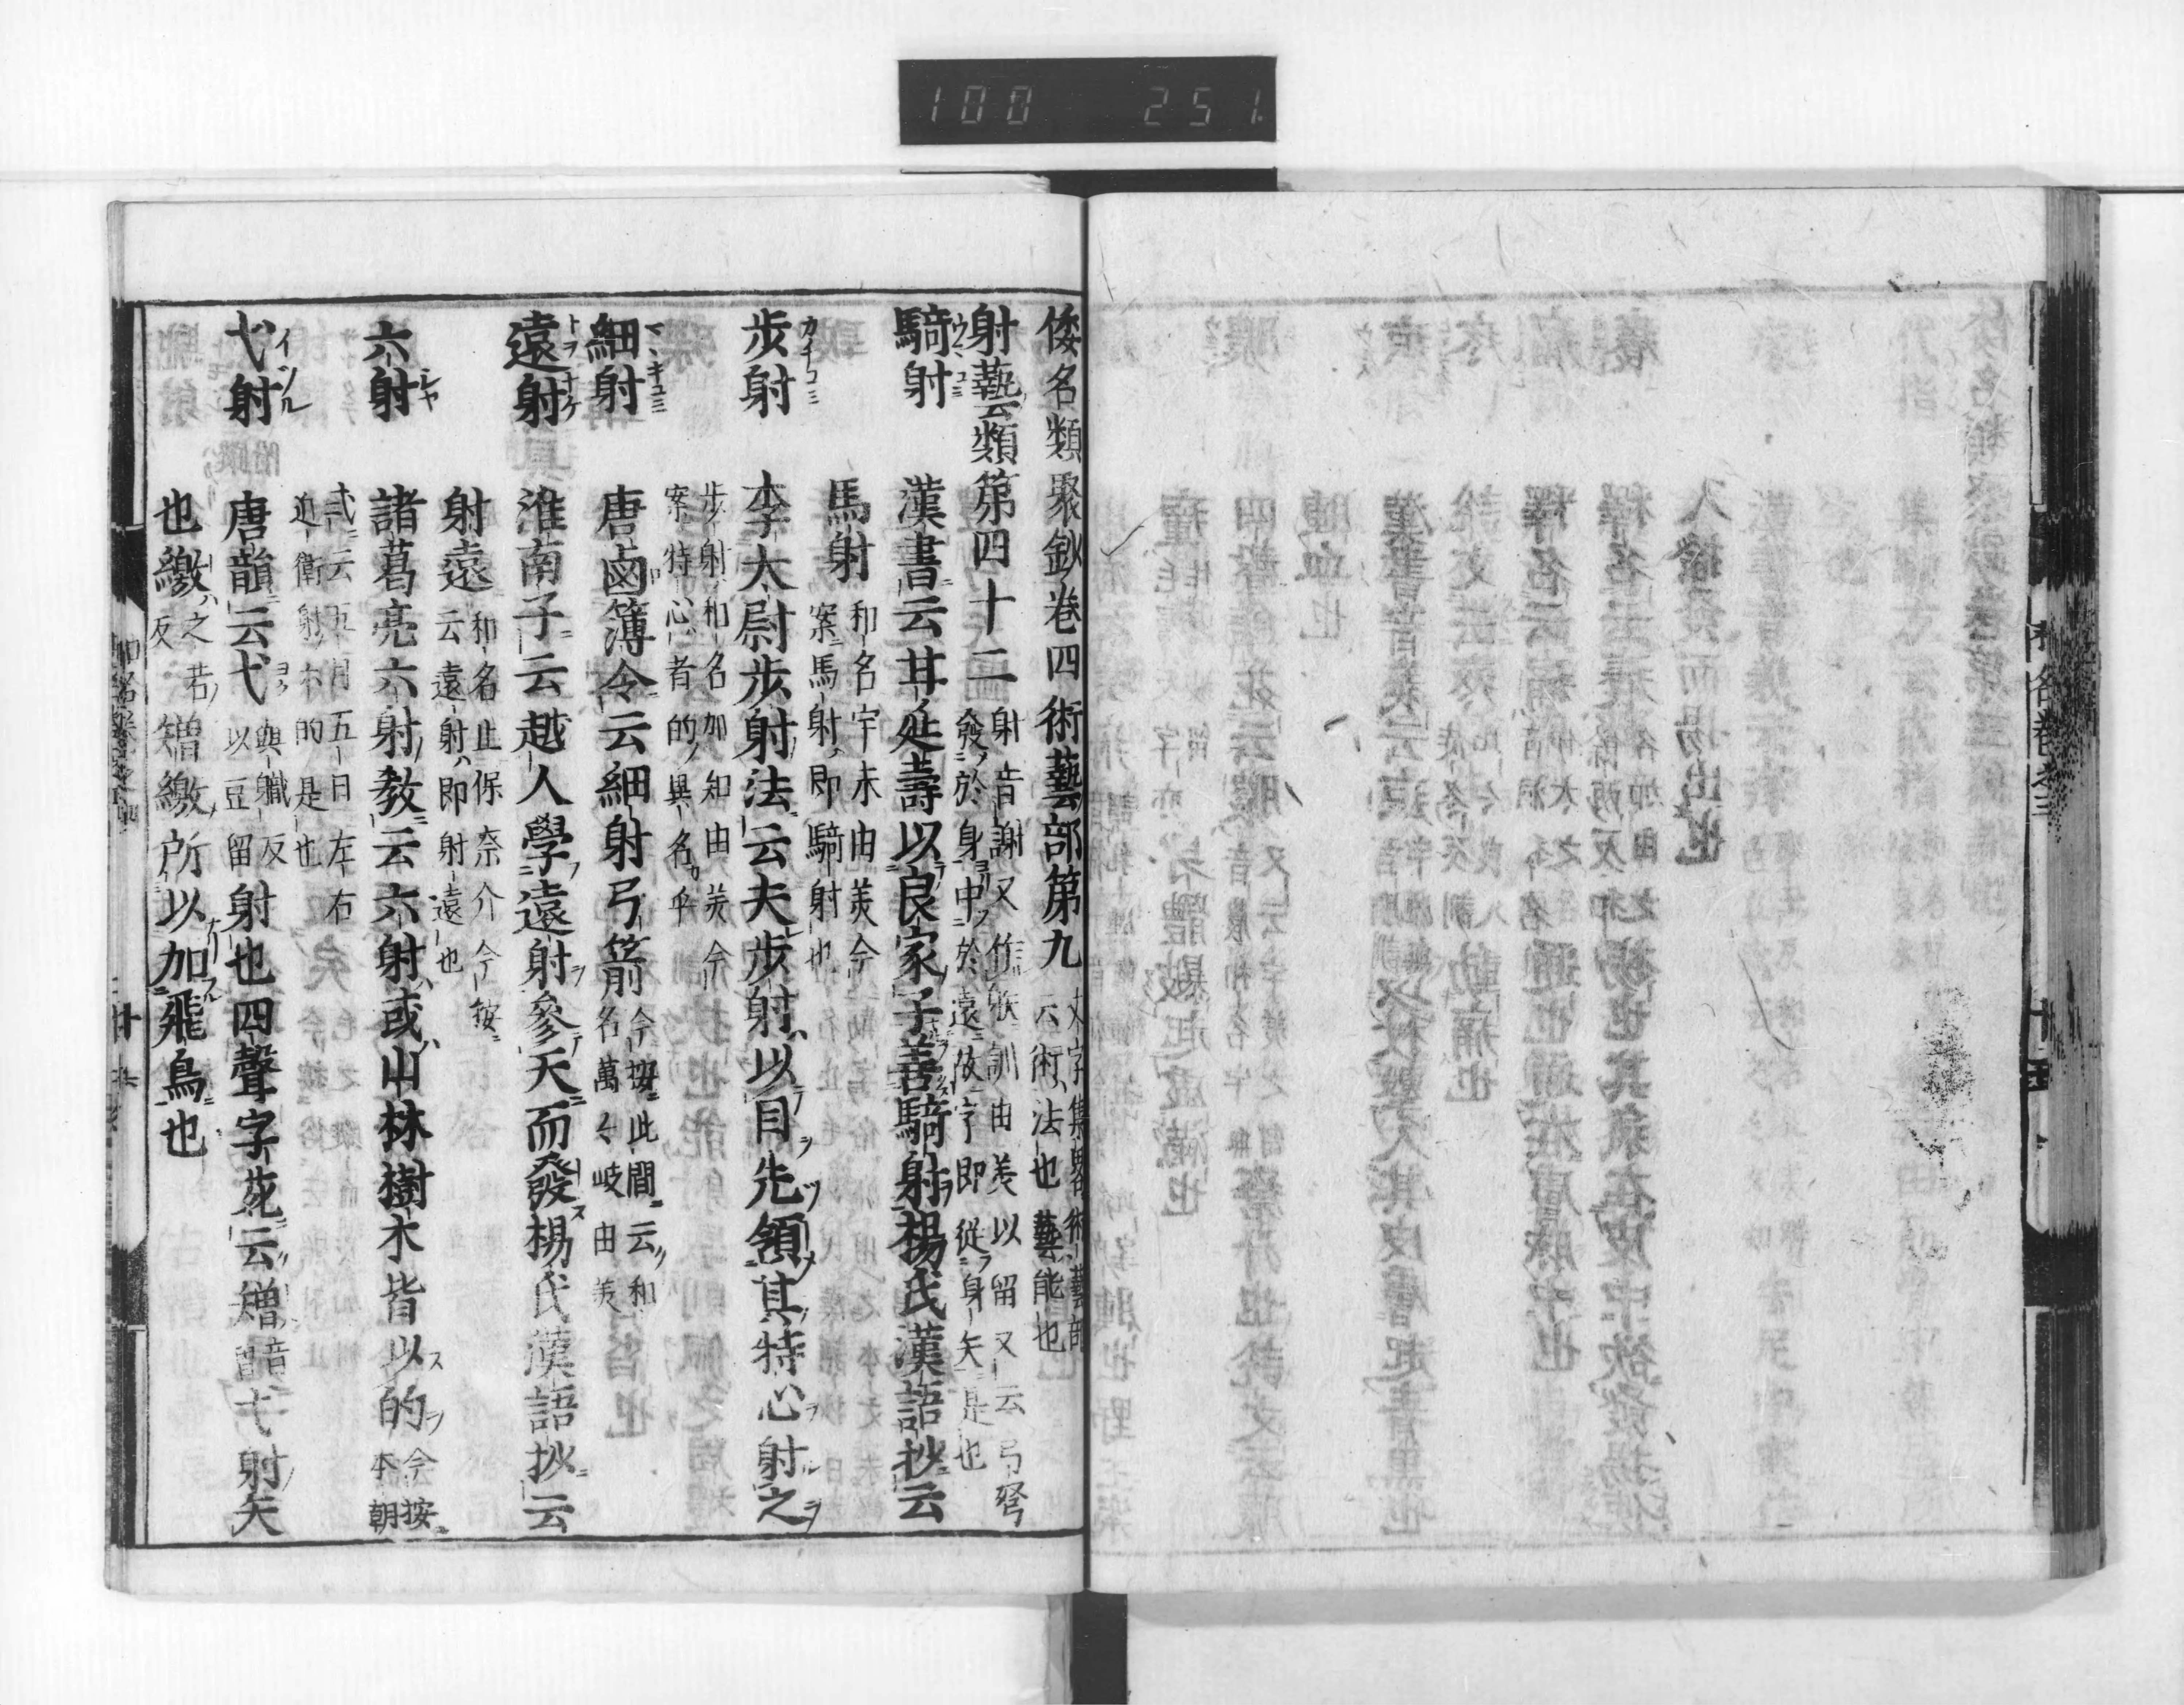 100 251.
倭名類聚鈔巻四術藝部第九 文字集略云術、法也藝、能也
射藝類第四十二 射音謝又作䠶訓由美以留又云弓弩
發於身中於遠故字即従身矢是也
騎射 漢書云甘延壽以良家子善騎射楊氏漢語抄云
馬射 和名宇末由美今
案馬射即騎射也
歩射 李大尉歩射法云夫歩射以目先領其特心射之
歩射和名加知由美今
案特心者的異名也
細射 唐鹵簿令云細射弓箭 今按此間云和
名萬々岐由美
遠射 淮南子云越人學遠射參天而發楊氏漢語抄云
射遠 和名止保奈介今按
云遠射即射遠也
六射 諸葛亮六射教云六射或山林樹木皆以的 今按
本朝
式云五月五日左右
近衛射六的是也
弋射 唐韻云弋 與職反
以豆留 射也四聲字苑云矰 音
曽 弋射矢
也繳 之若
反 矰繳所以加飛鳥也